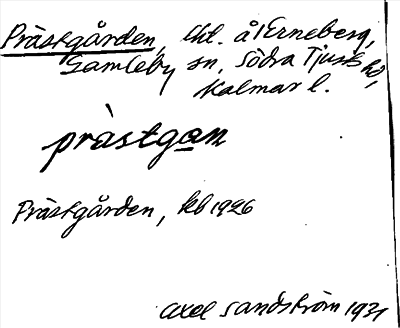 Prästgården, lht. å Erneberg,
Gamleby sn, Södra Tjusts hd,
Kalmar l.
pràstga̲n
Prästgården, kb 1926
Axel Sandström 1931